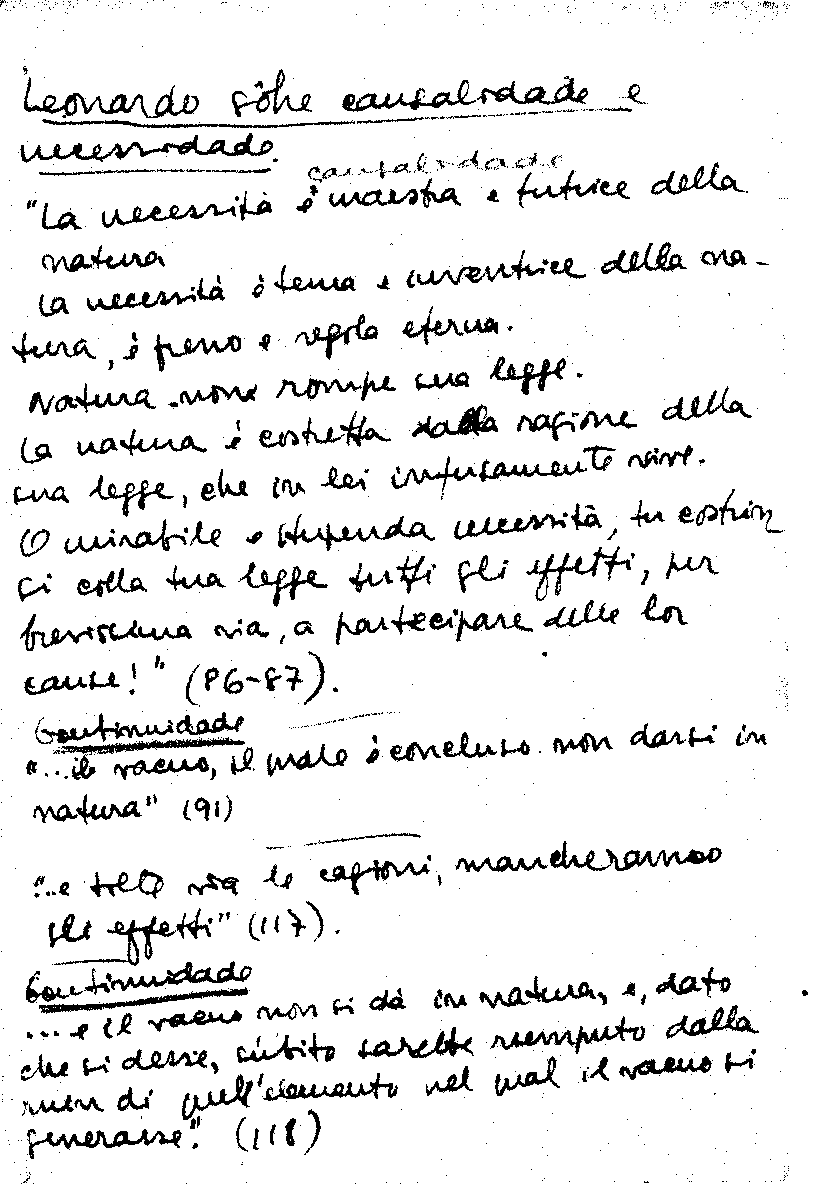 Leonardo sôbre causalidade e
necessidade.
causalidade
"La necessità è maestra e tutrice della
natura
La necessità è tema e inventrice della na-
tura, è freno e regola eterna.
Natura non rompe sua legge.
La natura è costretta dalla ragione della
sua legge, che in lei infusamente vive.
O mirabile e stupenda necessità, tu costrin
gi colla tua legge tutti gli effetti, per
brevissima via, a partecipare delle lor
cause!" (86-87).
Continuidade
"...il vacuo, il quale è concluso non darsi in
natura" (91)
"..e tolte via le cagioni, mancheranno
gli effetti" (117).
Continuidade
... e il vacuo non si dà in natura, e, dato
che si desse, subito sarebbe riemputo dalla
di quell'elemento nel qual il vacuo si
generasse". (118)